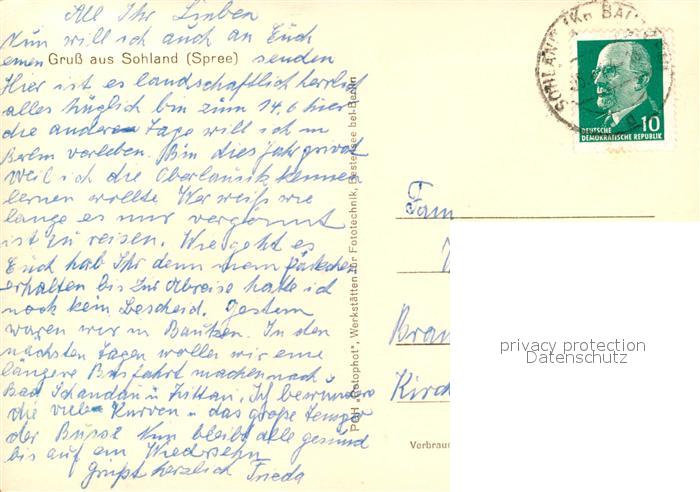 All Ihr Lieben
Nun will ich auch an Euch
einen Gruß aus Sohland (Spree) senden
Hier ist es landschaftlich herrlich
alles hüglich bin zum 14.6 hier
die anderen Tage will ich in
Berlin verleben. Bin dies Jahr privat
weil ich die Oberlausitz kennen
lernen wollte Wer weiß wie
lange es nur vergönnt
ist zu reisen. Wie geht es
Euch hab Ihr denn mein Päckchen
erhalten bis zur Abreise hatte ich
noch kein Bescheid. Gestern
waren wir in Bautzen. In den
nächsten Tagen wollen wir eine
längere Busfahrt machen nach
Bad Schandau u Zittau. Ich bewundere
die viele Kurven u das große
der Busse Nun bleibt alle gesund
bis auf ein Wiedersehn
Grüßt herzlich Frieda
PGH „Fotophot", Werkstätten für Fototechnik, Bestensee bei Berlin
SOHLAND (Kr. BAUTZEN)
10
DEUTSCHE
DEMOKRATISCHE REPUBLIK
Fam
Kirch
Verbrau
privacy protection
Datenschutz